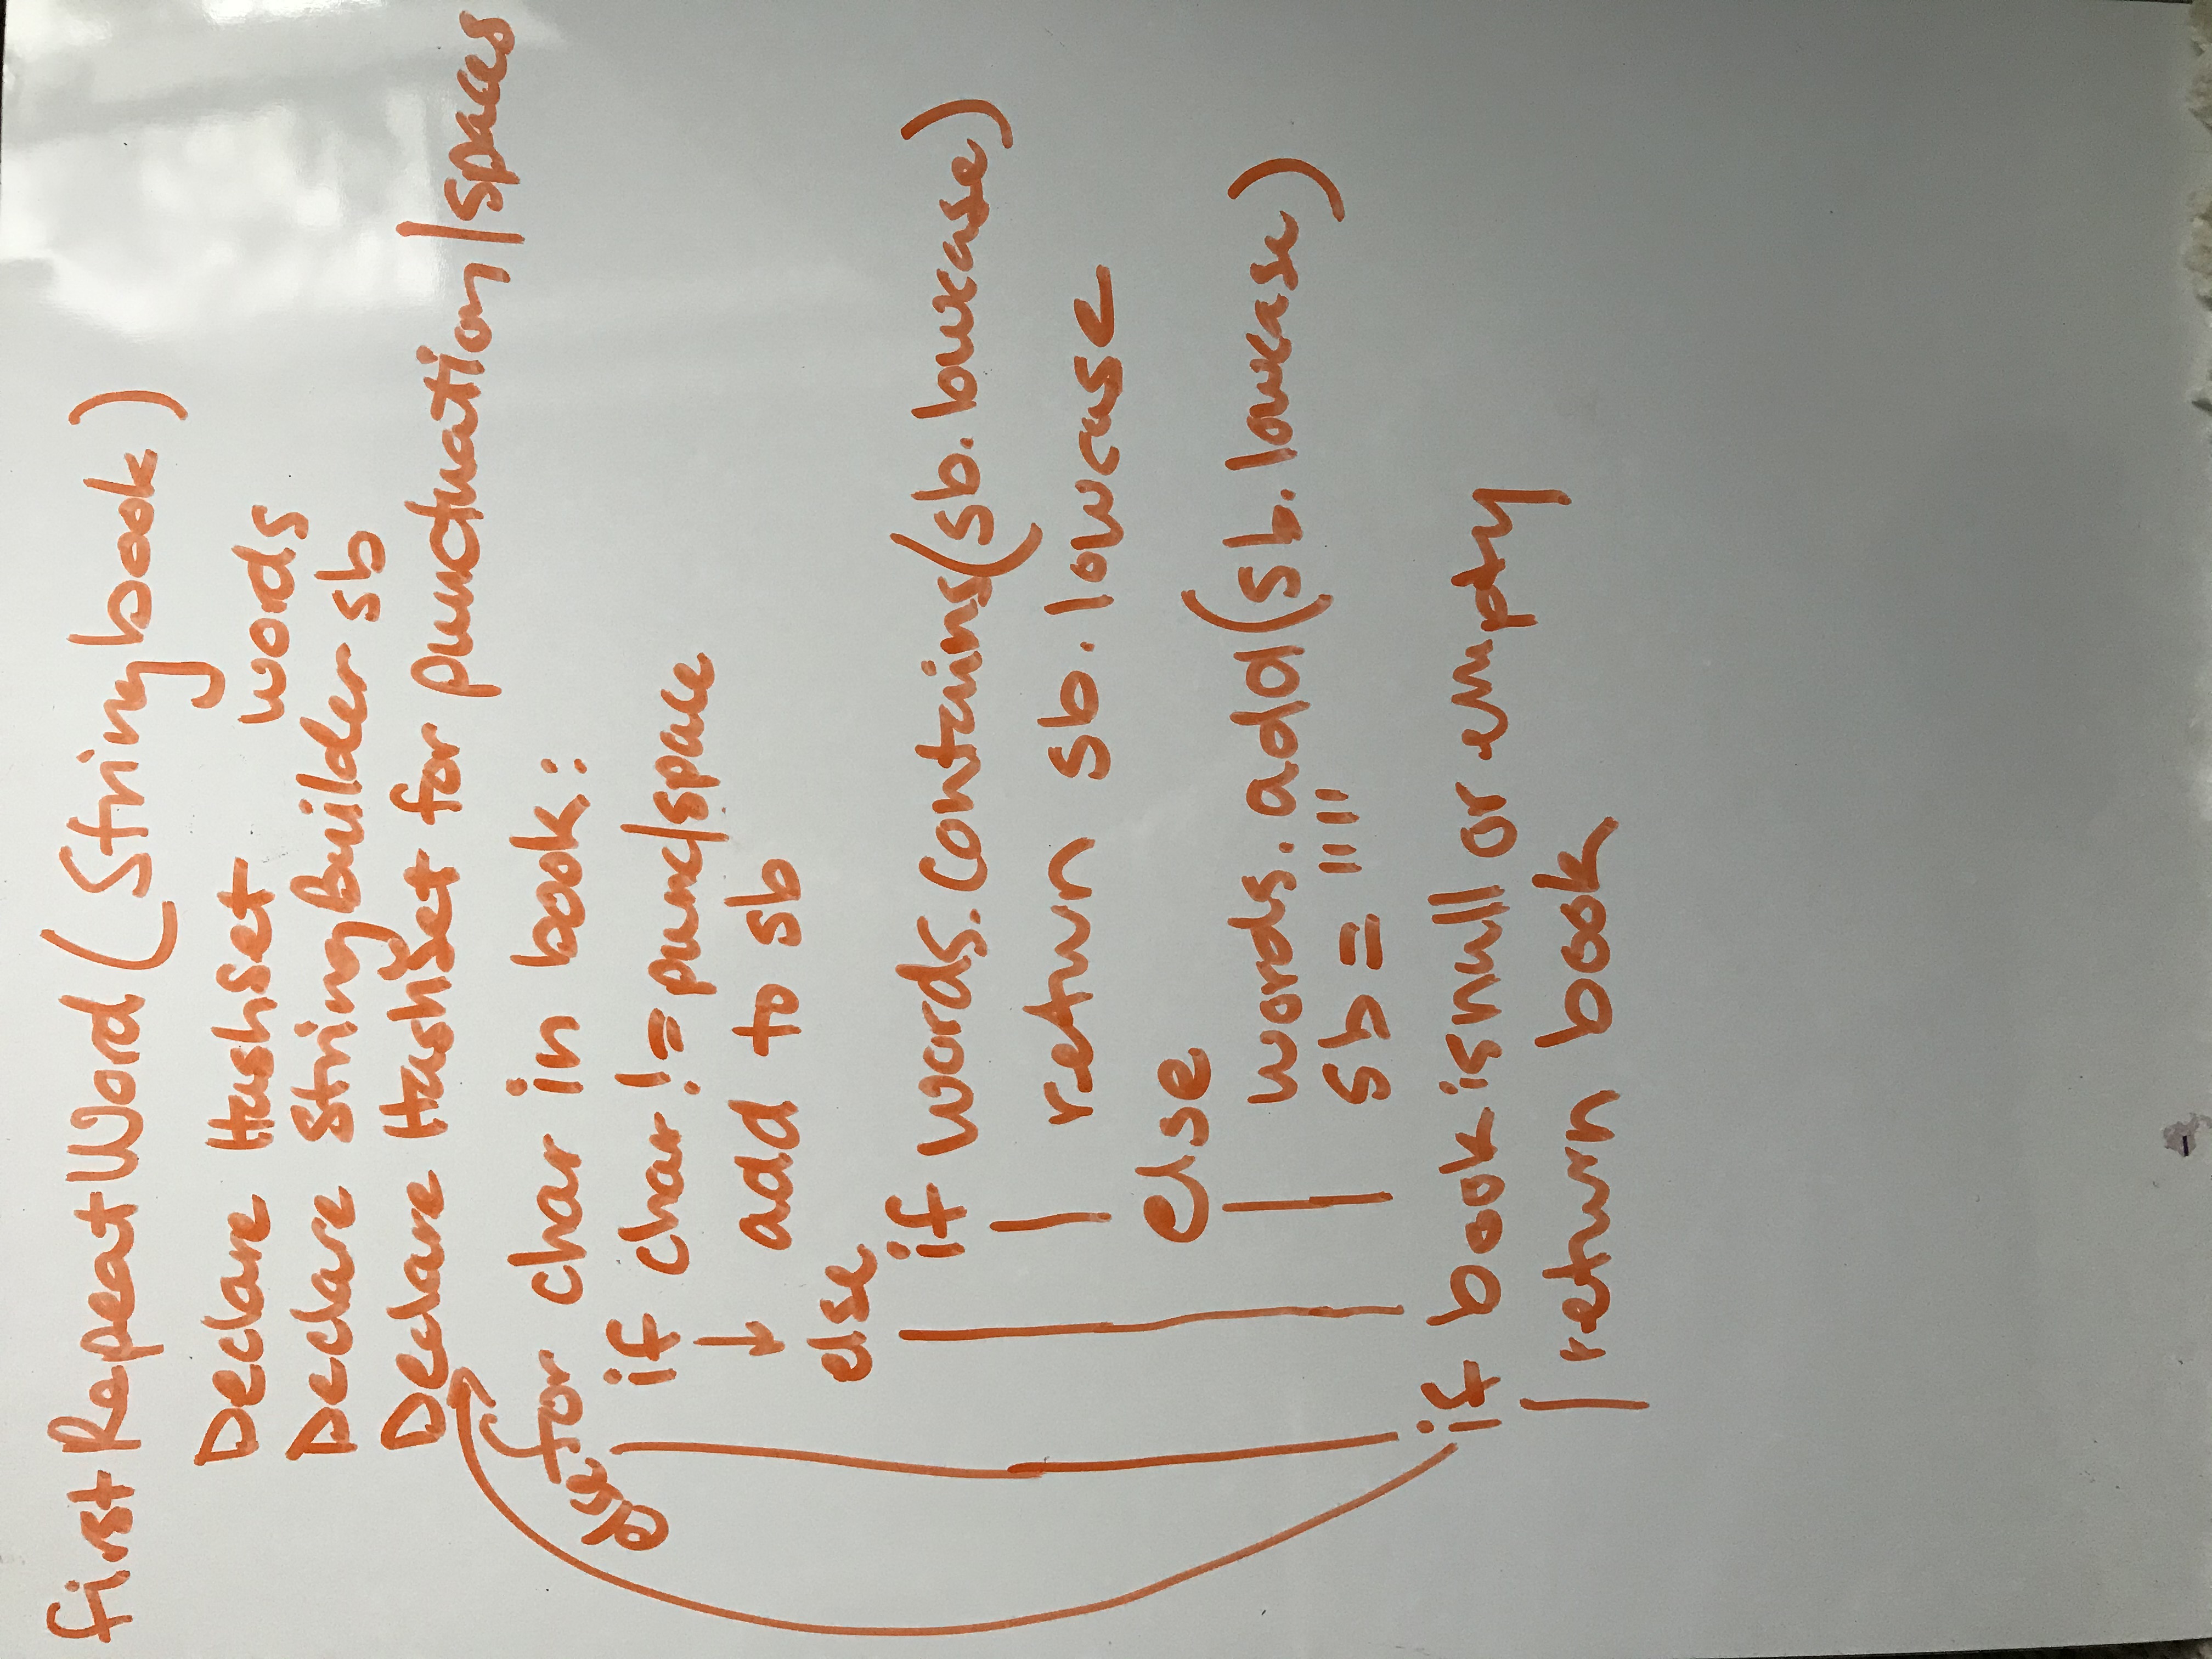 firstRepeatWord(String book)
Declare HashSet words
Declare StringBuilder sb
Declare HashSet for punctuation/spaces
else
for char in book:
if char != punc/space
add to sb
else
if words.contains(sb.lowcase)
return sb.lowcase
else
words.add(sb.lowcase)
sb = ""
if book is null or empty
return book